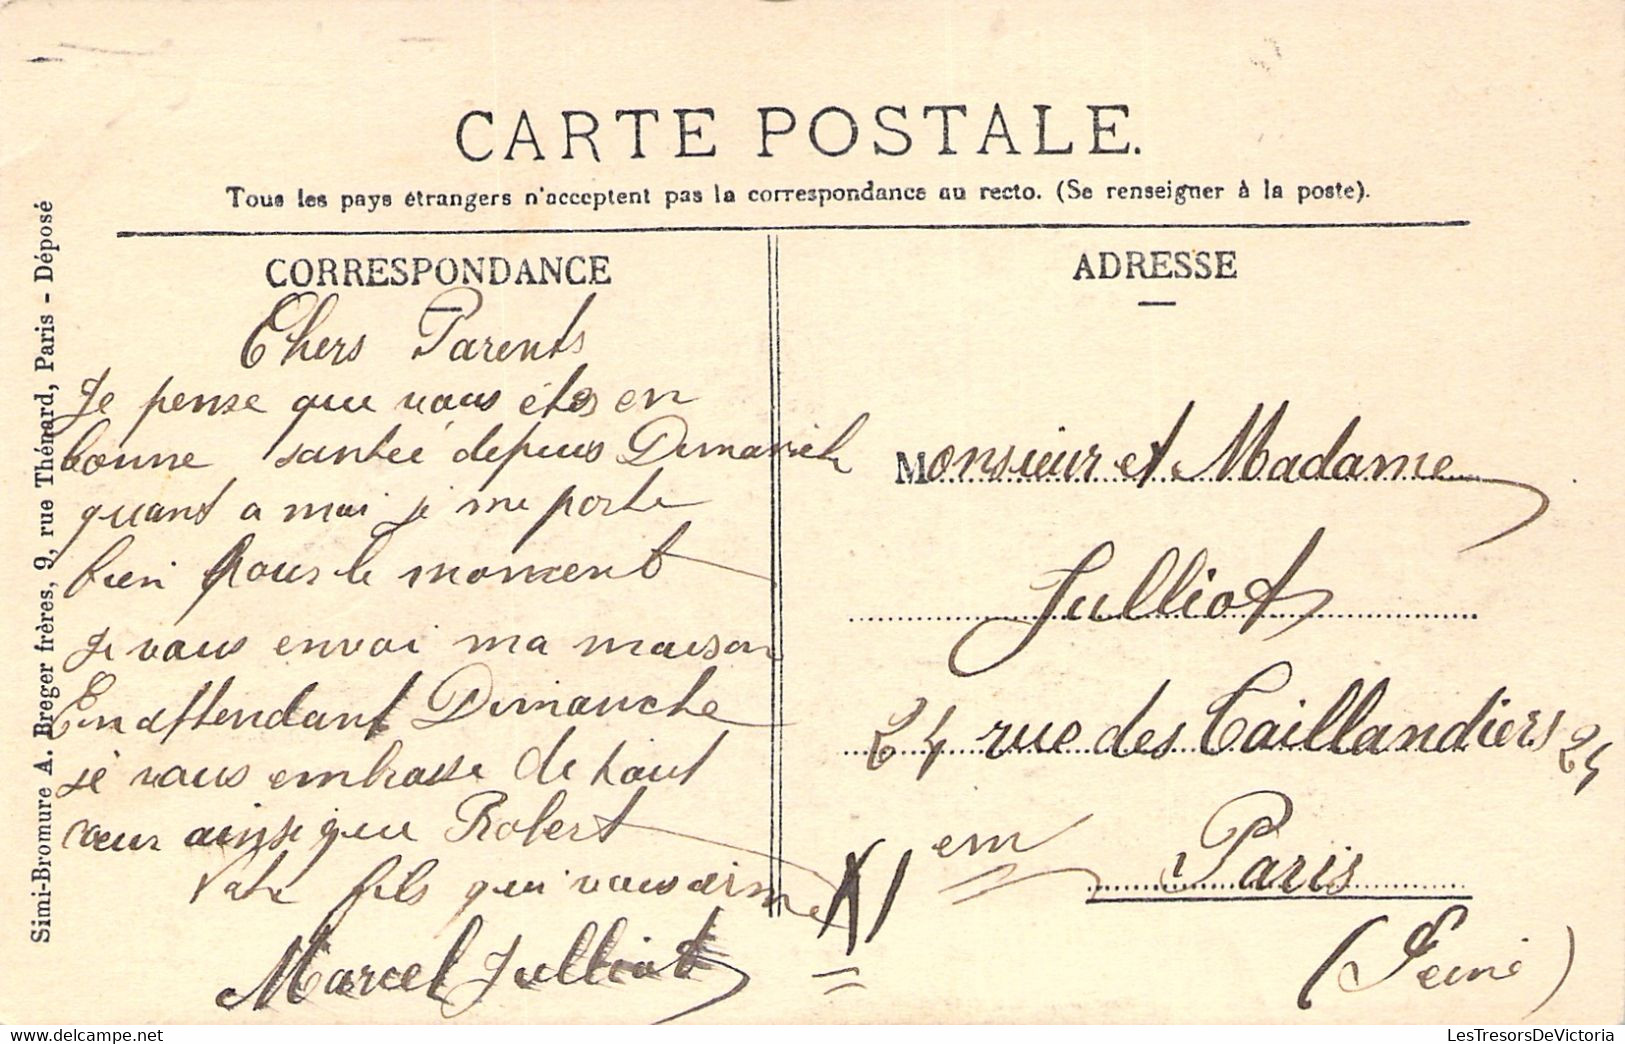 CARTE POSTALE.
Tous les pays étrangers n'acceptent pas la correspondance au recto. (Se renseigner à la poste).
CORRESPONDANCE
Chers Parents
Je pense que vous êtes en
bonne santée depuis Dimanche
quant a moi je me porte
bien pour le moment
Je vous envoi ma maison
En attendant Dimanche
je vous embrasse de tout
cœur ainsi que Robert
Votre fils qui vous aime
Marcel Julliot
ADRESSE
Monsieur et Madame
Julliot
24 rue des Taillandiers 24
XI em Paris
(Seine)
Simi-Bromure A. Breger frères, 9, rue Thénard, Paris - Déposé
LesTresorsDeVictoria